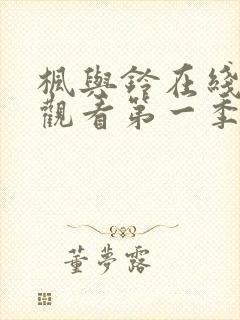 楓與鈴在綫
觀看第一季
董夢露